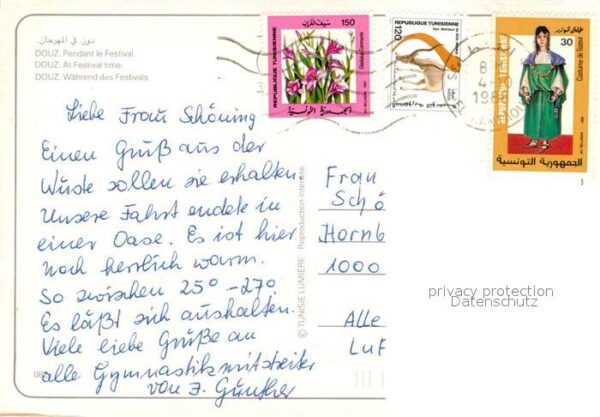 دوز في المهرجان
DOUZ. Pendant le Festival.
DOUZ. At Festival time.
DOUZ. Während des Festivals
Liebe Frau Schöning
Einen Gruß aus der
Wüste sollen sie erhalten.
Unsere Fahrt endete in
einer Oase. Es ist hier
noch herrlich warm.
So zwischen 25° - 27°.
Es läßt sich aushalten.
Viele liebe Grüße an
alle Gymnastikmitstreiter
von J. Günther
© TUNISIE LUMIÈRE Reproduction interdite
150
REPUBLIQUE TUNISIENNE
الجمهورية التونسية
120
REPUBLIQUE TUNISIENNE
8
4
30
REPUBLIQUE TUNISIENNE
Costume de Tozeur
الجمهورية التونسية
Frau
Schö
Hornb
1000
Alle
Luf
privacy protection
Datenschutz